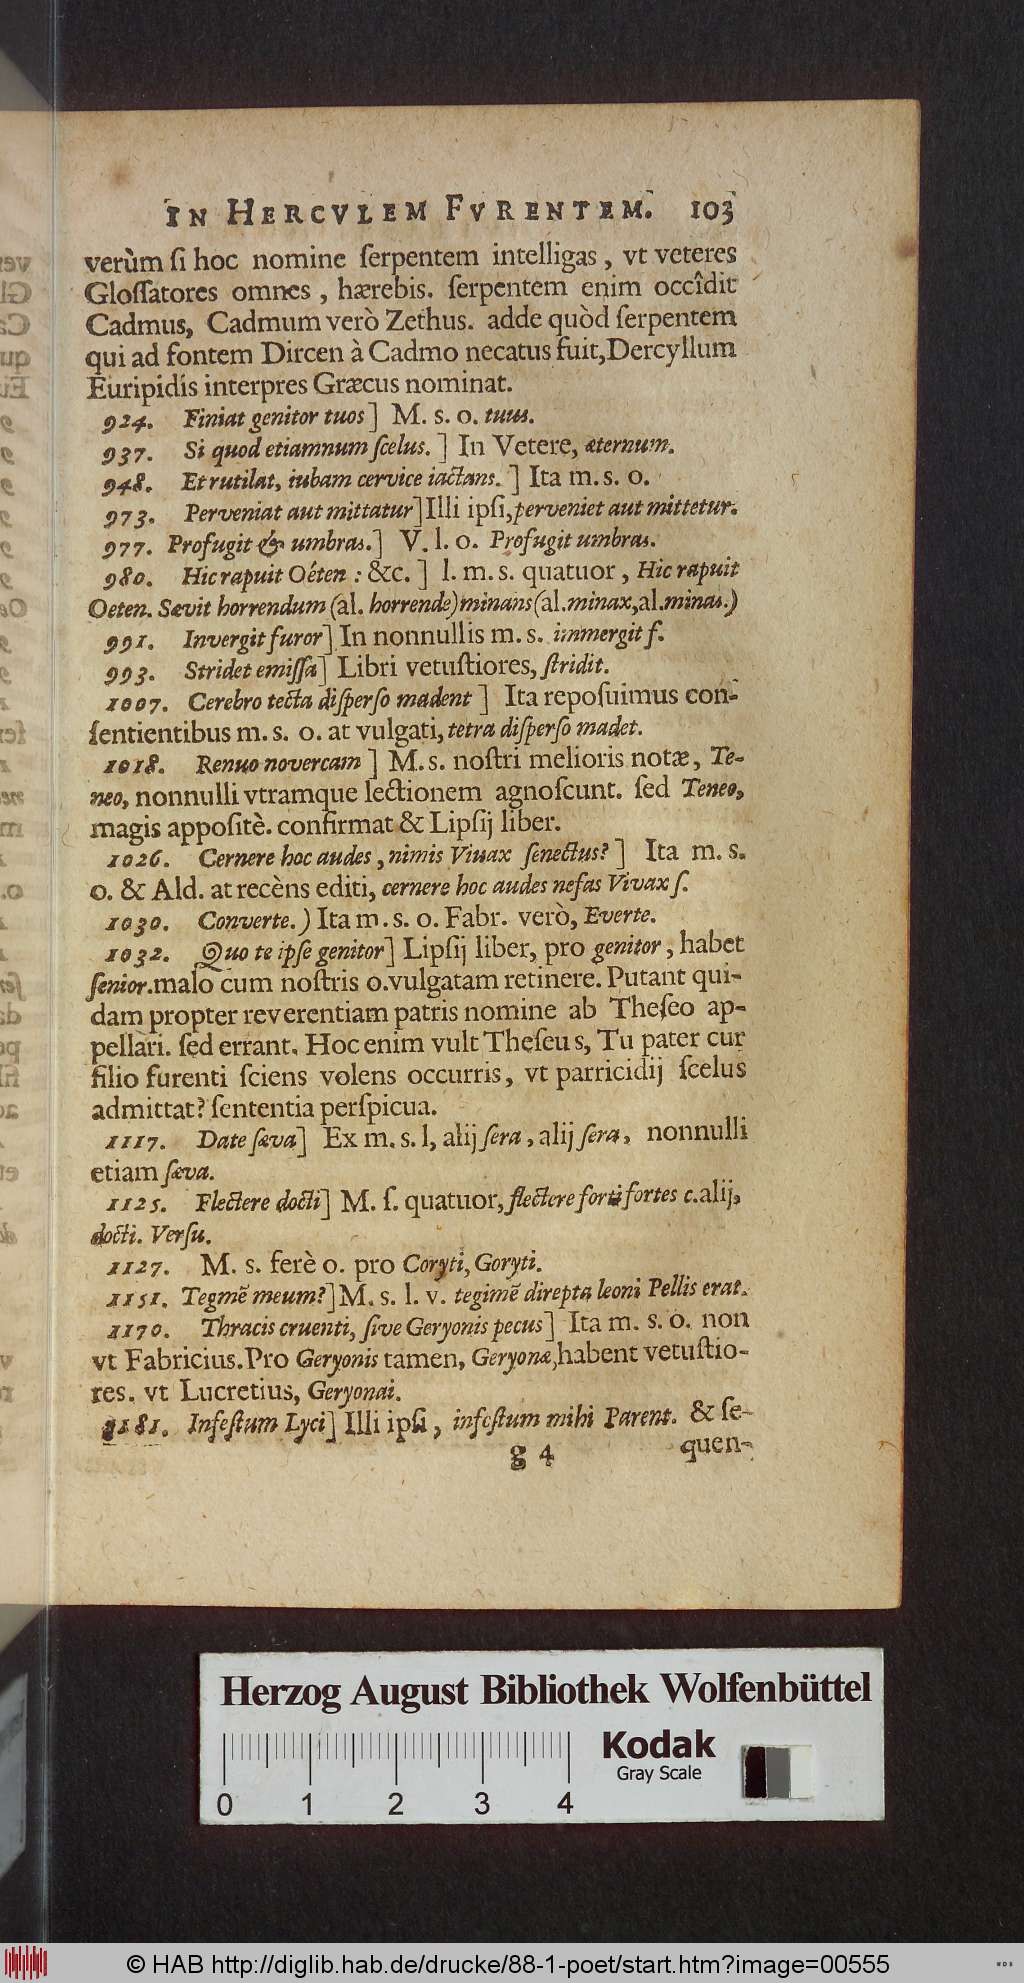 IN HERCVLEM FVRENTEM. 103
verùm ſi hoc nomine ſerpentem intelligas, vt veteres
Gloſſatores omnes, hærebis. ſerpentem enim occîdit
Cadmus, Cadmum verò Zethus. adde quòd ſerpentem
qui ad fontem Dircen à Cadmo necatus fuit, Dercyllum
Euripidis interpres Græcus nominat.
924. Finiat genitor tuos] M. s. o. tuus.
937. Si quod etiamnum ſcelus.] In Vetere, æternum.
948. Et rutilat, iubam cervice iactans.] Ita m. s. o.
973. Perveniat aut mittatur] Illi ipſi, perveniet aut mittetur.
977. Profugit & umbras.] V. l. o. Profugit umbras.
980. Hic rapuit Oëten: &c.] l. m. s. quatuor, Hic rapuit
Oeten. Sævit horrendum (al. horrende) minans (al. minax, al. minas.)
991. Invergit furor] In nonnullis m. s. immergit f.
993. Stridet emiſſa] Libri vetuſtiores, ſtridit.
1007. Cerebro tecta diſperſo madent] Ita repoſuimus con-
ſentientibus m. s. o. at vulgati, tetra diſperſo madet.
1018. Renuo novercam] M. s. noſtri melioris notæ, Te-
neo, nonnulli vtramque lectionem agnoſcunt. ſed Teneo,
magis appoſitè. confirmat & Lipſij liber.
1026. Cernere hoc audes, nimis Viuax ſenectus?] Ita m. s.
o. & Ald. at recèns editi, cernere hoc audes nefas Vivax ſ.
1030. Converte.) Ita m. s. o. Fabr. verò, Everte.
1032. Quo te ipſe genitor] Lipſij liber, pro genitor, habet
ſenior. malo cum noſtris o. vulgatam retinere. Putant qui-
dam propter reverentiam patris nomine ab Theſeo ap-
pellari. ſed errant. Hoc enim vult Theſeus, Tu pater cur
filio furenti ſciens volens occurris, vt parricidij ſcelus
admittat? ſententia perſpicua.
1117. Date ſæva] Ex m. s. l, alij ſera, alij ſera, nonnulli
etiam ſæva.
1125. Flectere docti] M. ſ. quatuor, flectere fortes c. alij,
docti. Verſu.
1127. M. s. ferè o. pro Coryti, Goryti.
1151. Tegmẽ meum?] M. s. l. v. tegimẽ direpta leoni Pellis erat.
1170. Thracis cruenti, ſive Geryonis pecus] Ita m. s. o. non
vt Fabricius. Pro Geryonis tamen, Geryonæ, habent vetuſtio-
res. vt Lucretius, Geryonai.
1181. Infeſtum Lyci] Illi ipſi, infeſtum mihi Parent. & ſe-
g 4 quen-
Herzog August Bibliothek Wolfenbüttel
Kodak
Gray Scale
0 1 2 3 4
© HAB http://diglib.hab.de/drucke/88-1-poet/start.htm?image=00555